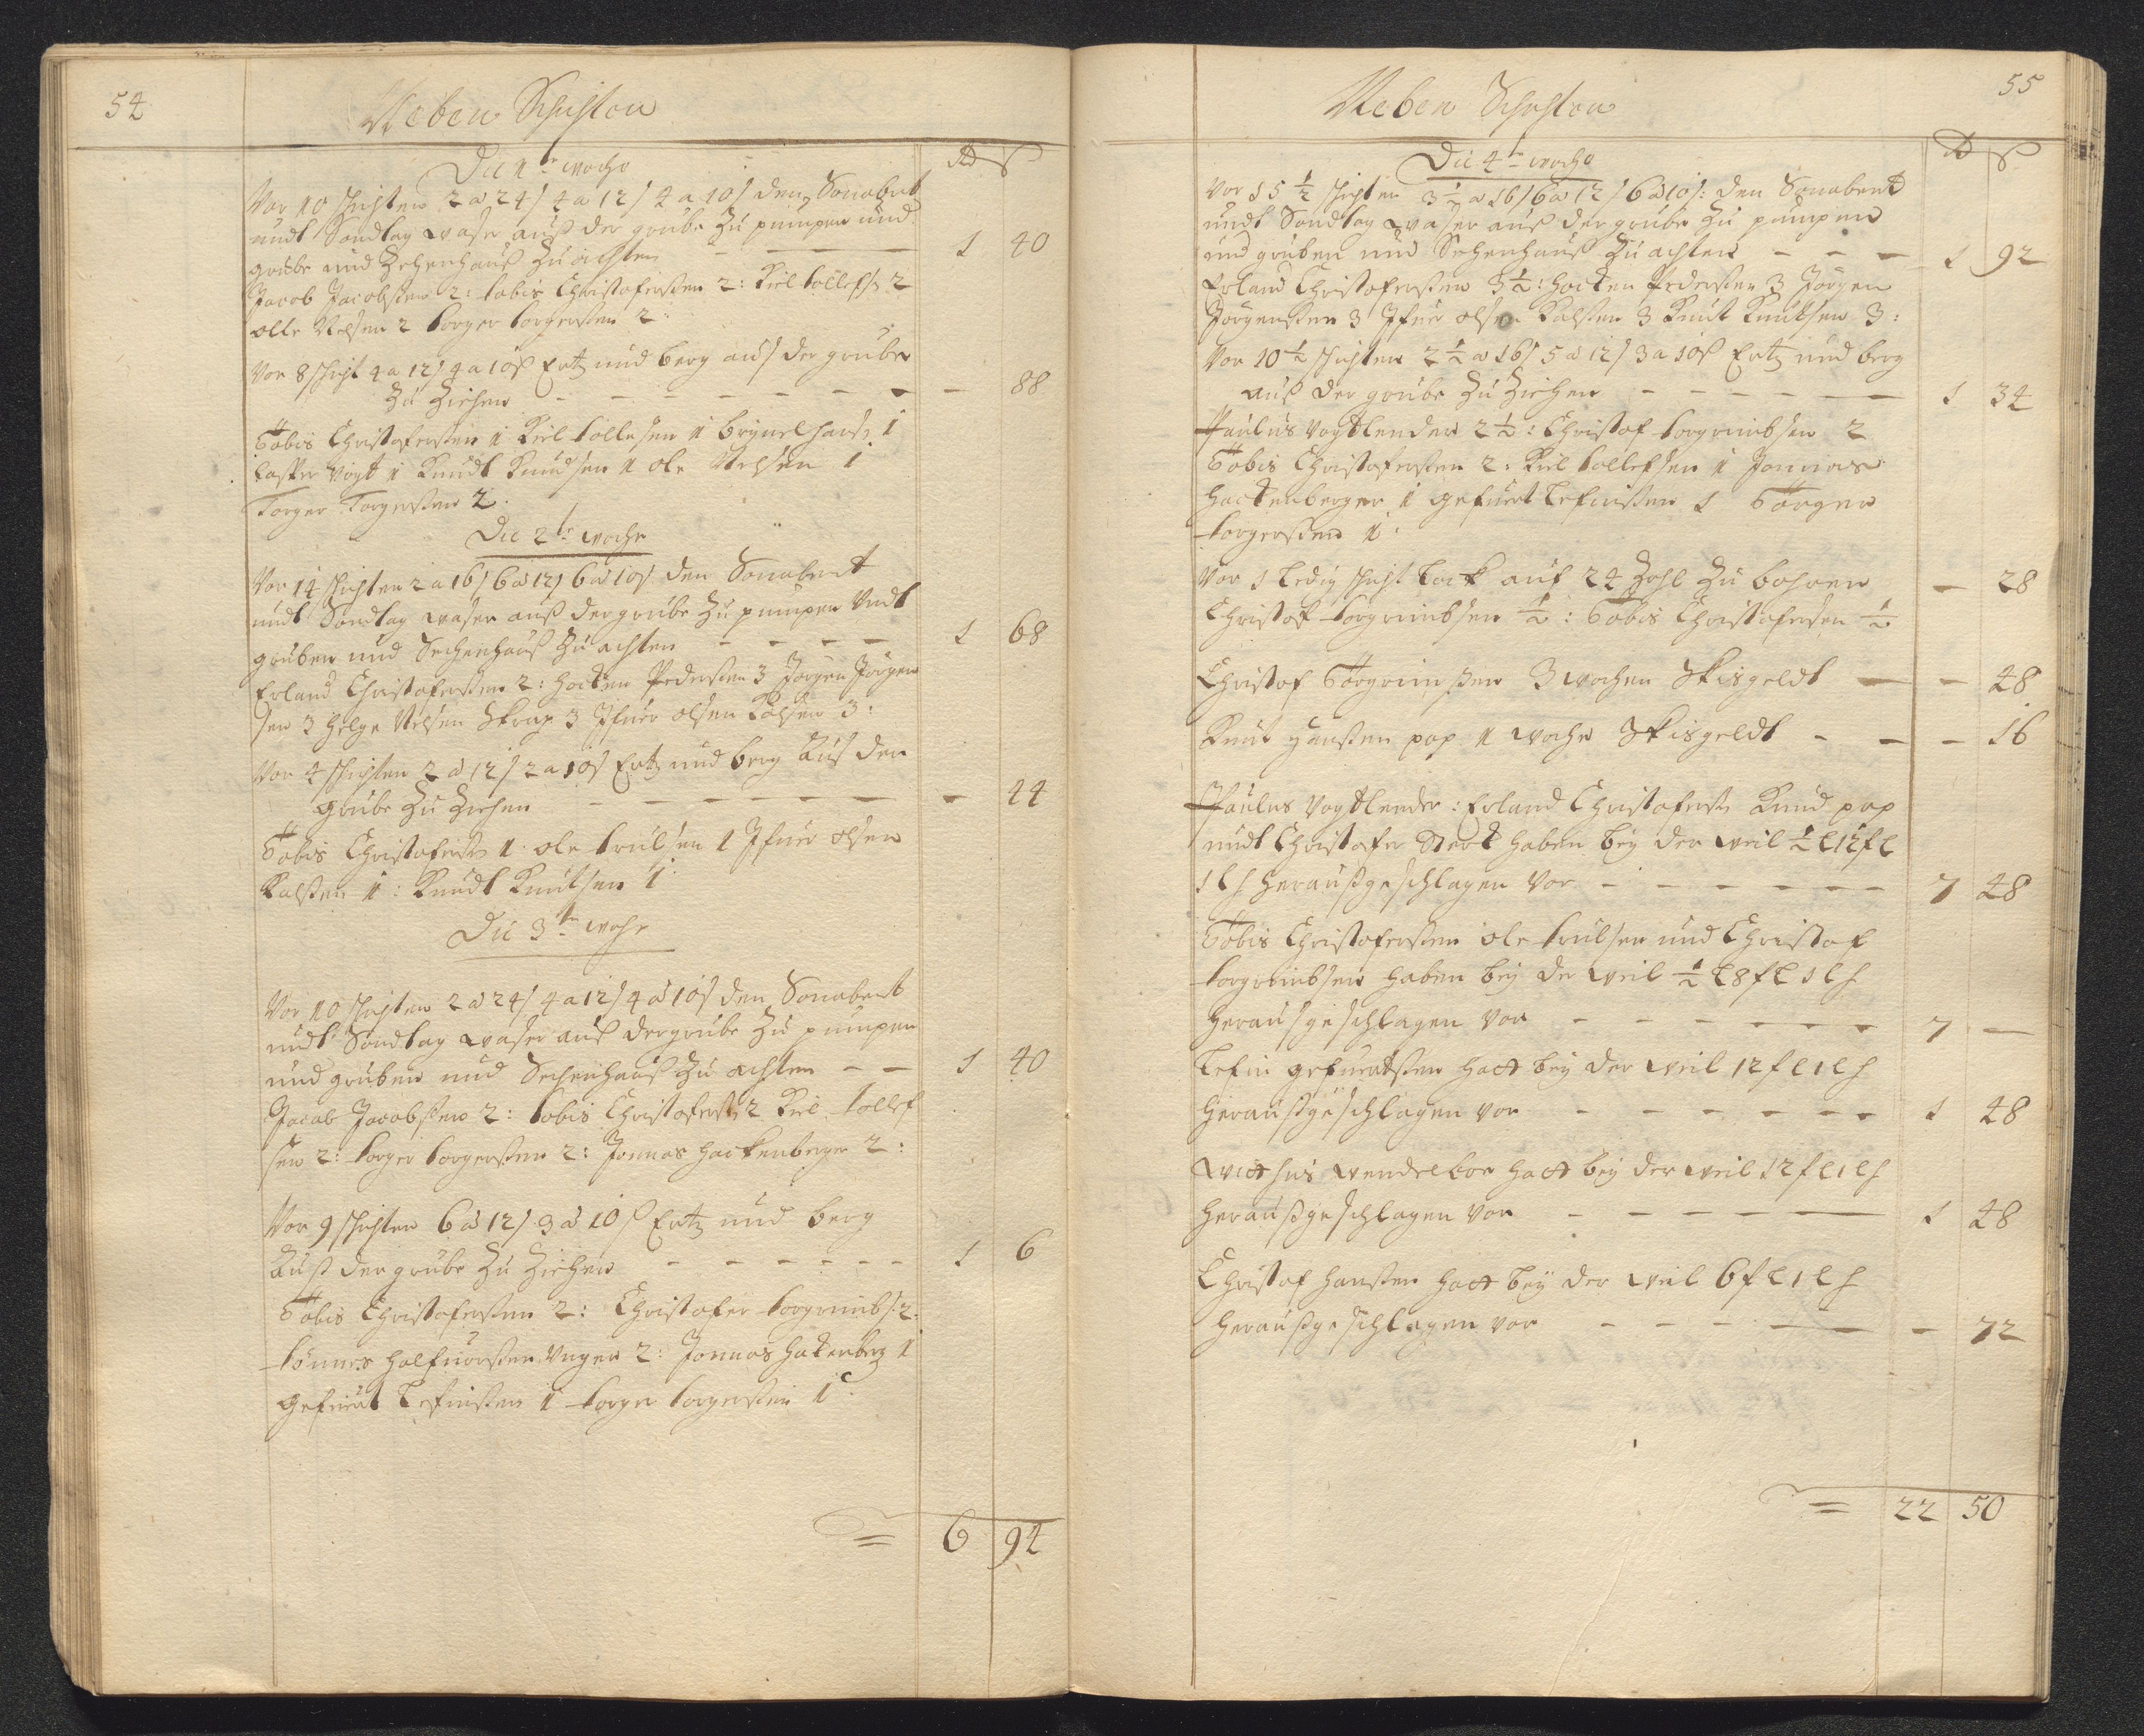 54
Neben Schichten
Die 1te woche
Rd ß
Vor 10 schichten 2 a 24 ß 4 a 12 ß 4 a 10 ß den Sonabent
undt Sondtag waser auß der grube Zu pumpen und
grube und Zechenhauß Zu achten - - - 1 40
Jacob Jacobßen 2: tobis Christoferßen 2: Kiel tollefs: 2
olle Nelsen 2 torger torgerßen 2:
Vor 8 schicht 4 a 12 ß 4 a 10 ß Ertz und berg auß der gruben
Zu Ziehen - - - - - - - - 88
Tobis Christoferßen 1 Kiel tollefsen 1 brynel hans: 1
Casper Vogt 1 Knudt Knudsen 1 ole Nelsen 1
Torger Torgerßen 2.
Die 2te woche
Vor 14 schichten 2 a 16 ß 6 a 12 ß 6 a 10 ß den Sonabent
undt Sondtag waser auß der grube Zu pumpen Undt
gruben und Sechenhauß Zu achten - - - - 1 68
Erland Christoferßen 2: hocken Pederßen 3 Jörgen Jörgen
sen 3 helge Nelsen Skrap 3 Ifuer olsen Kalsen 3:
Vor 4 schichten 2 a 12 ß 2 a 10 ß Ertz und berg Auß der
grube Zu Ziehen - - - - - - - 44
Tobis Christoferß: 1: ole trulsen 1 Ifuer olsen
Kalßen 1: Knudt Knutsen 1:
Die 3te woche
Vor 10 schichten 2 a 24 ß 4 a 12 ß 4 a 10 ß den Sonabent
undt Sondtag waser auß der grube Zu pumpen
und gruben und Sechenhauß Zu achten - - 1 40
Jacob Jacobßen 2: tobis Christoferß: 2 Kiel tollef
sen 2: torger torgerßen 2: Jonnas hackenberger 2:
Vor 9 schichten 6 a 12 ß 3 a 10 ß Ertz und berg
Auß der grube Zu Ziehen - - - - - - 1 6
Tobis Christoferßen 2: Christofer torgrimbs: 2:
tönnes halfuorßen Unger 2: Jonnas hakenberg 1
gefuert Lefuißen 1 torger torgerßen 1:
= 6 94
55
Neben Schichten
Die 4te woche
Rd ß
Vor 15 1/2 schichten 3 1/2 a 16 ß 6 a 12 ß 6 a 10 ß: den Sonabent
undt Sondtag waser auß der grube Zu pumpen
und gruben und Sechenhauß Zu achten - - - 1 92
Erland Christoferßen 3 1/2: hocken Pederßen 3 Jörgen
Jörgenßen 3 Ifuer olsen Kalßen 3 Knut Knutsen 3:
Vor 10 1/2 schichten 2 1/2 a 16 ß 5 a 12 ß 3 a 10 ß Ertz und berg
auß der grube Zu Ziehen - - - - - - 1 34
Paulus Vogtlender 2 1/2: Christof torgrimbsen 2
Tobis Christoferßen 2: Kiel tollefsen 1 Jonnas
hackenberger 1 gefuert Lefuißen 1 Torger
torgerßen 1:
Vor 1 Ledig schicht Lock auf 24 Zohl Zu bohren - 28
Christof torgrimbsen 1/2: Tobis Christofersen 1/2
Christof Torgrimßen 3 wochen Skisgeldt - - 48
Knut hanßen pop 1 woche Skisgeldt - - - 16
Paulus Vogtlender: Erland Christoferß: Knud pop
undt Christofer Sterk haben bey der weil 1/2 L 12 f L
1 L h herausgeschlagen Vor - - - - - - - 7 48
Tobis Christoferßen ole trulsen und Christof
torgrimbsen haben bey de weil 1/2 L 8 f L 1 L h
herausgeschlagen Vor - - - - - - - 7 -
Lefui gefuertßen hatt bey der weil 12 f L 1 L h
heraußgeschlagen vor - - - - - - - 1 48
Matthis wendelbor hatt bey der weil 12 f L 1 L h
heraußgeschlagen Vor - - - - - 1 48
Christof hanßen hatt bey der weil 6 f L 1 L h
heraußgeschlagen vor - - - - - - 72
= 22 50